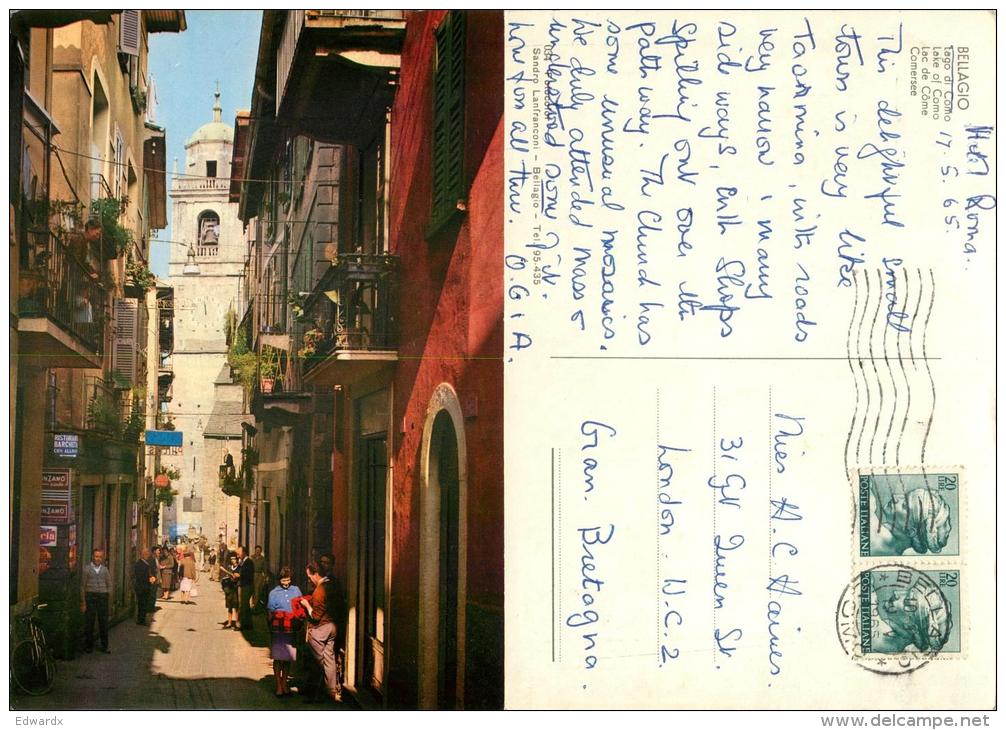 RISTORANTE
BARCHETTA
CON ALLOGGIO
CINZANO
CINZANO
BELLAGIO
Lago di Como
Lake of Como
Lac de Côme
Comersee
Hotel Roma.
17. 5. 65.
This delightful small
town is very like
Taormina, with roads
very narrow & many
side ways, with shops
spilling out over the
pathway. The Church has
some unusual mosaics.
We duly attended Mass &
understood some of it.
Love from all three. O. G & A.
Sandro Lanfranconi - Bellagio - Tel. 95.435
Miss H. C. Haines.
31 Gt Queen St.
London. W.C.2
Gran. Bretagna.
20
LIRE
POSTE ITALIANE
20
LIRE
POSTE ITALIANE
BELLAGIO
Edwardx
www.delcampe.net